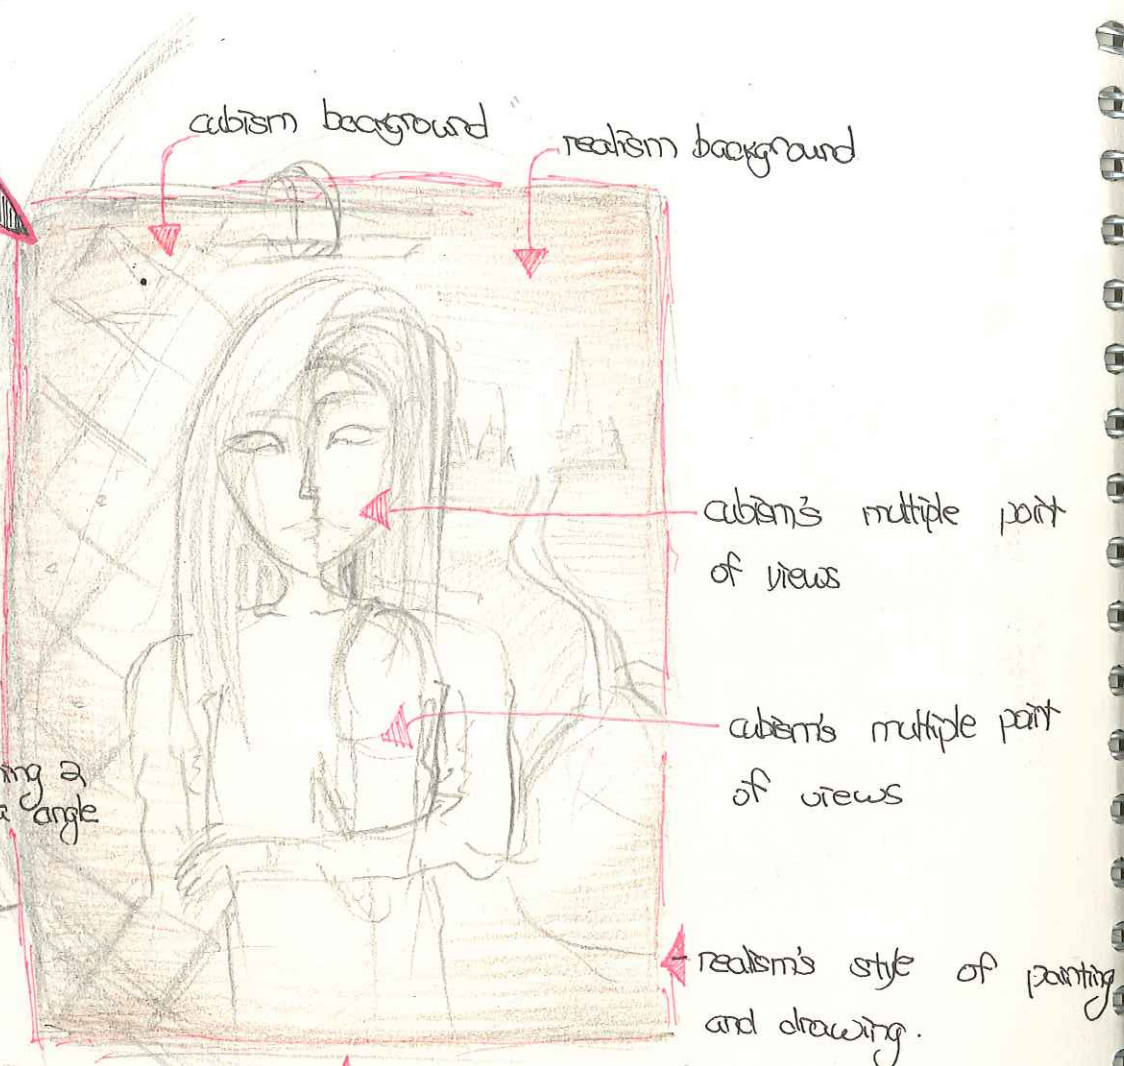 cubism background
realism background
cubism's multiple point
of views
cubism's multiple point
of views
ing a
angle
realism's style of painting
and drawing.